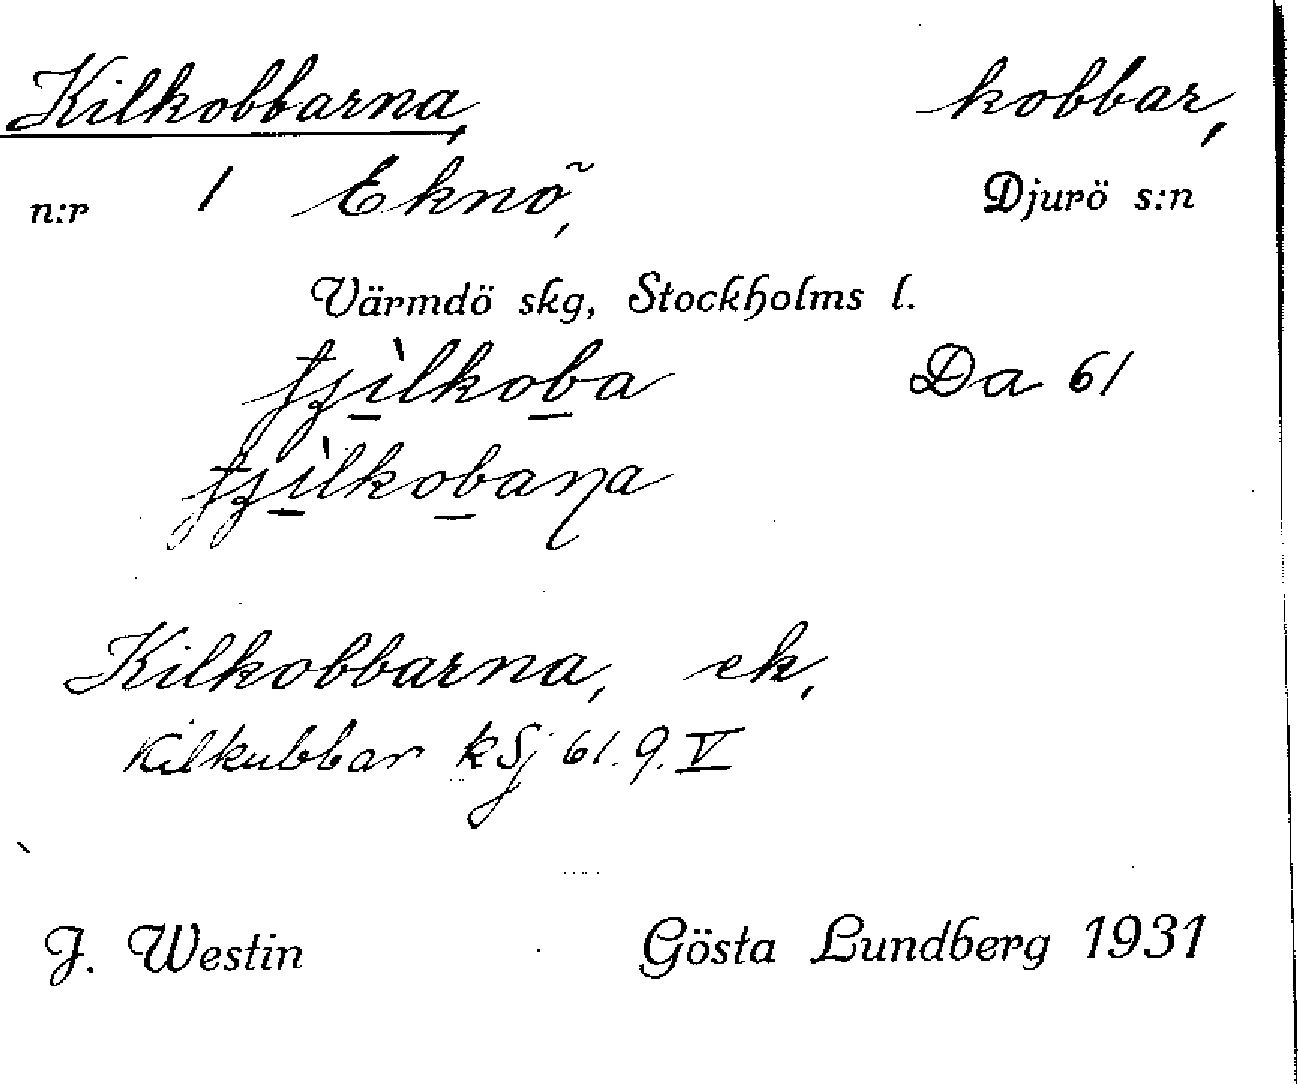 Kilkobbarna, kobbar,
n:r 1 Eknö, Djurö s:n
Värmdö skg, Stockholms l.
tjìlkoba Da 61
tjìlkobaɳa
Kilkobbarna, ek,
Kilkubbar kSj 61.9.V
J. Westin Gösta Lundberg 1931